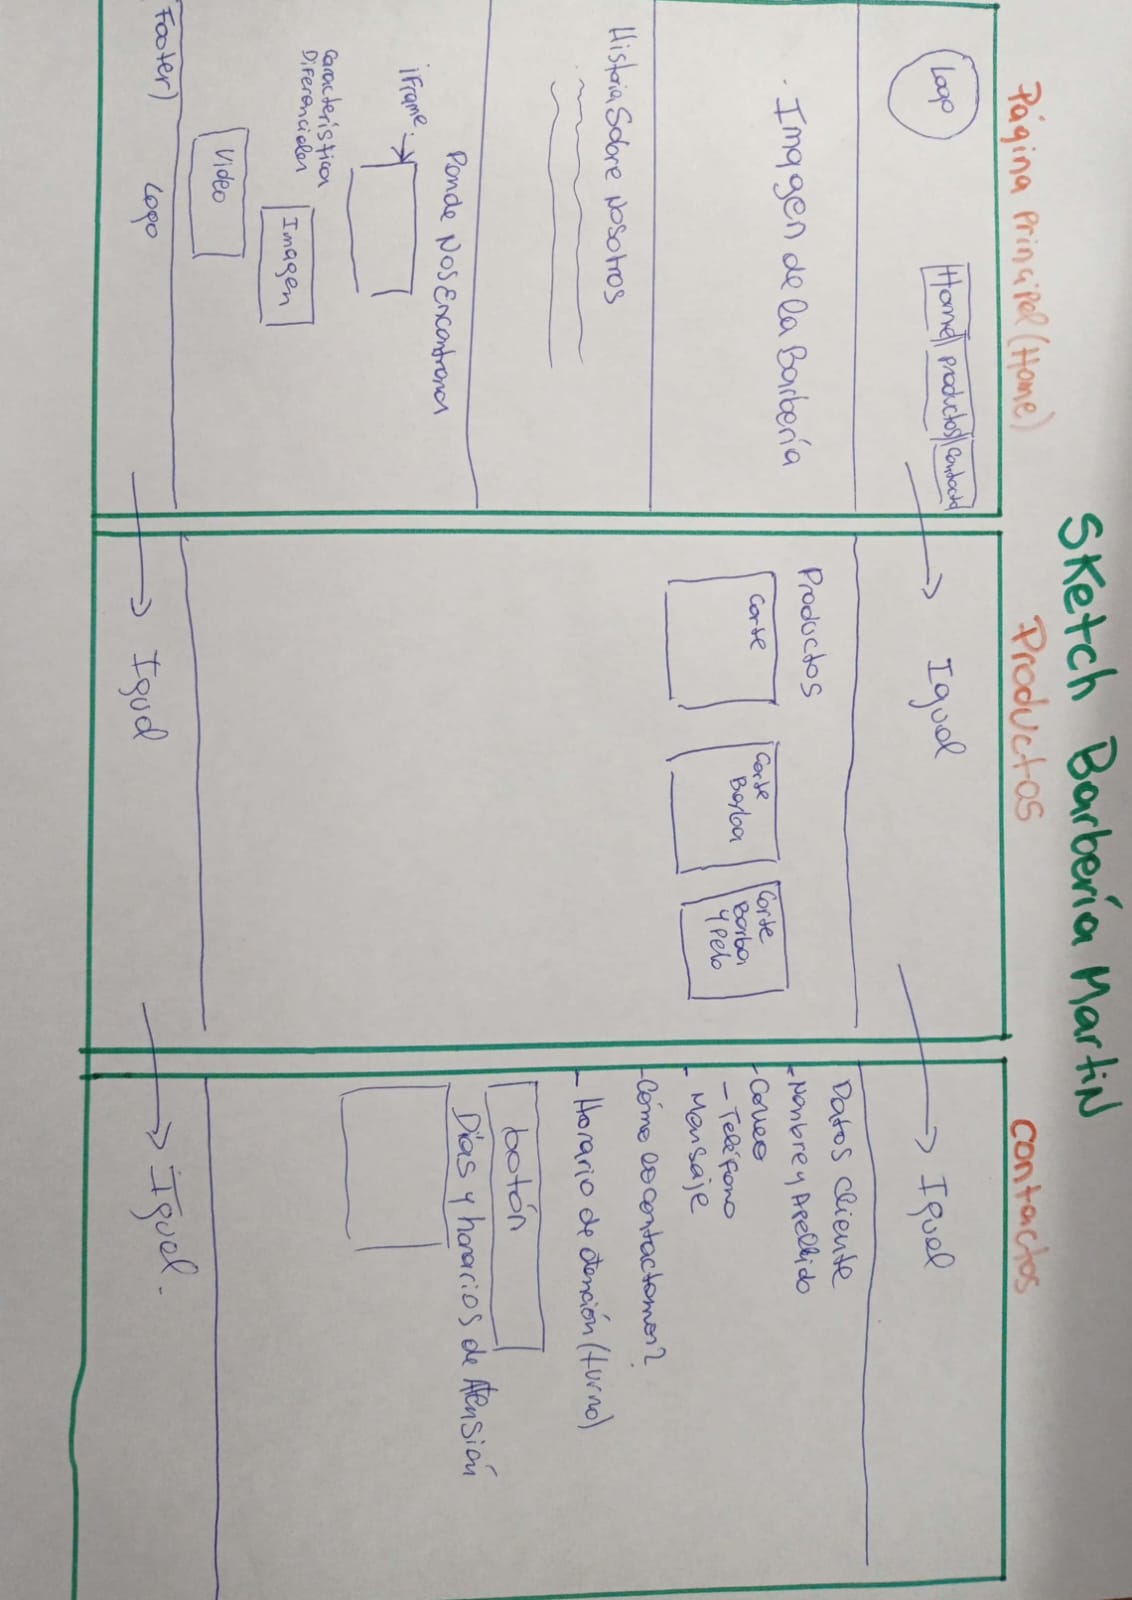 Sketch Barbería Martin
Página Principal (Home)
Logo
Home
Productos
Contacto
Imagen de la Barbería
Historia Sobre Nosotros
Donde Nos Encontrona
iFrame
Característica
Diferenciales
Imagen
Video
Footer)
Logo
Productos
Igual
Productos
Corte
Corte
Barba
Corte
Barba
y Pelo
Igual
Contactos
Igual
Datos Cliente
- Nombre y Apellido
- Correo
- Teléfono
- Mensaje
- Cómo lo contactamos?
- Horario de atención (turno)
botón
Días y horarios de Atensión
Igual.